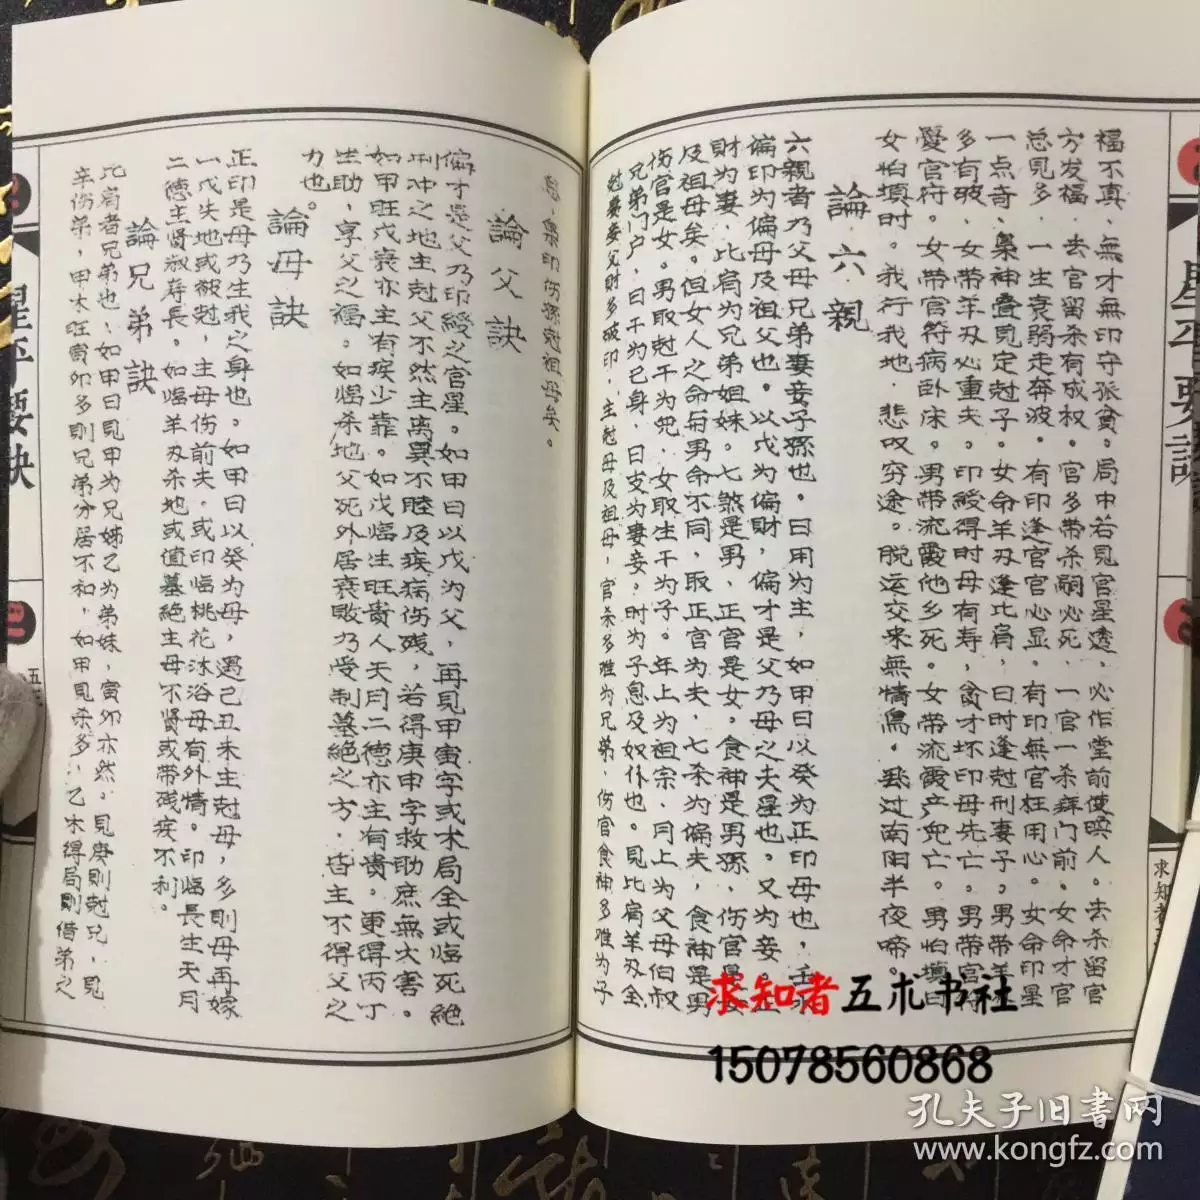 福不真，無才無印守孤貧。局中若見官星透，必作堂前使喚人。去杀留官
方发福，去官留杀有威权。官多带杀嗣必死，一官一杀拜门前。女命才官
总見多，一生衰弱走奔波。有印逢官官必显，有印無官枉用心。女命印星
一点奇，梟神叠見定尅子。女命羊刃逢比肩，日时逢尅刑妻子。男带羊
多有破，女带羊刃必重夫。印綬得时母有寿，貪才坏印母先亡。男带官符
愛官府，女带官符病卧床。男带流霞他乡死。女带流霞产兜亡。男怕壙日
女怕壙时。我行我地，悲叹穷途。脱运交来無情鳥。飛过南阳半夜啼。
論六親
六親者乃父母兄弟妻妾子孫也。日用为主，如甲日以癸为正印母也，壬水
偏印为偏母及祖父也。以戊为偏財，偏才是父乃母之夫星也。又为妾。正
財为妻，比肩为兄弟姐妹。七煞是男，正官是女。食神是男孫，伤官是女
及祖母矣。但女人之命与男命不同，取正官为夫，七杀为偏夫，食神是男
伤官是女。男取尅干为兜，女取生干为子。年上为祖宗，月上为父母伯叔
兄弟门户，日干为已身，日支为妻妾，时为子息及奴仆也。見比肩羊刃全
尅妻妾父財多破印，主尅母及祖母，官杀多难为兄弟，伤官食神多难为子
息，梟印伤孫尅祖母矣。
論父訣
偏才是父乃印綬之官星。如甲日以戊为父，再見甲寅字或木局全或临死絶
刑冲之地主尅父不然主离異不睦及疾病伤残，若得庚申字救助庶無大害。
如甲旺戊衰亦主有疾少靠。如戊临生旺貴人天月二德亦主有貴。更得丙丁
生助，享父之福。如临杀地父死外居衰敗乃受制墓絶之方，皆主不得父之
力也。
論母訣
正印是母乃生我之身也。如甲日以癸为母，遇己丑未主尅母，多則母再嫁
一戊失地或被尅，主母伤前夫。或印临桃花沐浴母有外情。印临長生天月
二德主賢淑寿長。如临羊刃杀地或值墓絶主母不賢或带残疾不利。
論兄弟訣
比肩者兄弟也，如甲日見甲为兄姊乙为弟妹，寅卯亦然。見庚則尅兄，見
辛伤弟，甲木旺寅卯多則兄弟分居不和，如甲見杀多，乙木得局則借弟之
星平要訣
求知者
五术书社
15078560868
孔夫子旧書网
www.kongfz.com